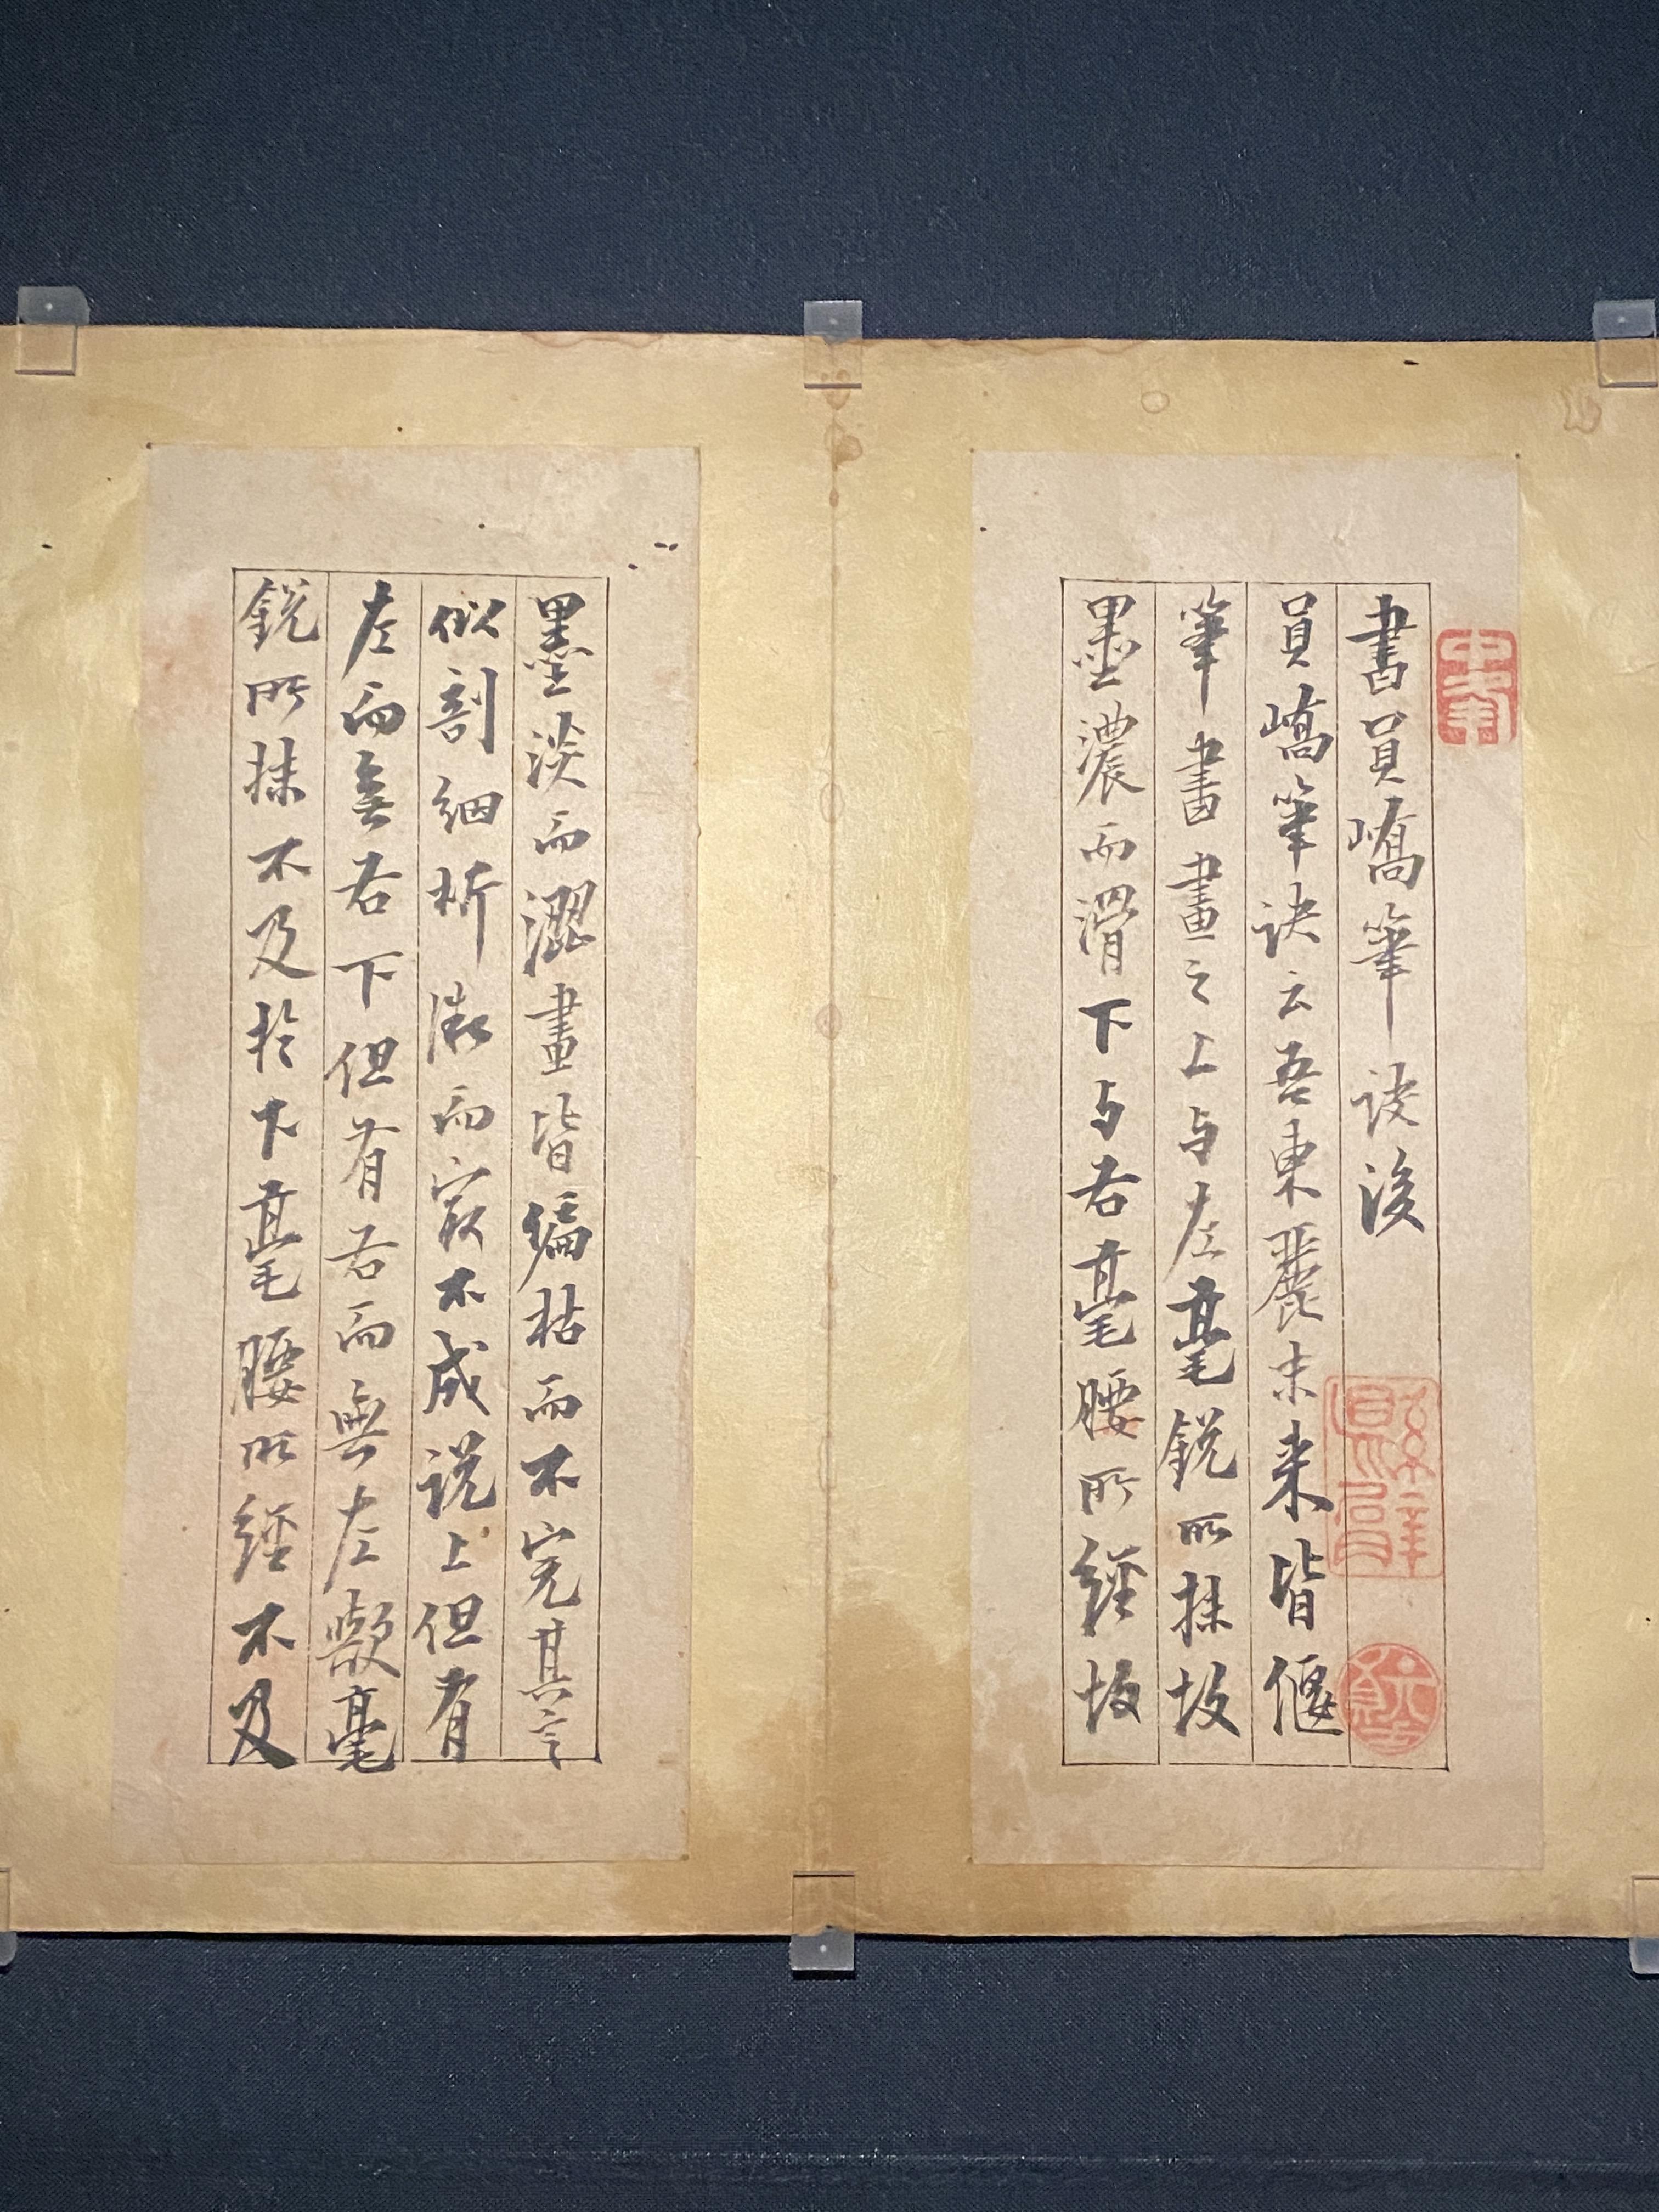 書員嶠筆訣後
員嶠筆訣云吾東麗末来皆偃
筆書畫之上与左毫銳所抹故
墨濃而滑下与右毫腰所經故
墨淡而澀畫皆偏枯而不完其言
似剖細析微而㝡不成說上但有
左而無右下但有右而無左歟毫
銳所抹不及於下毫腰所經不及